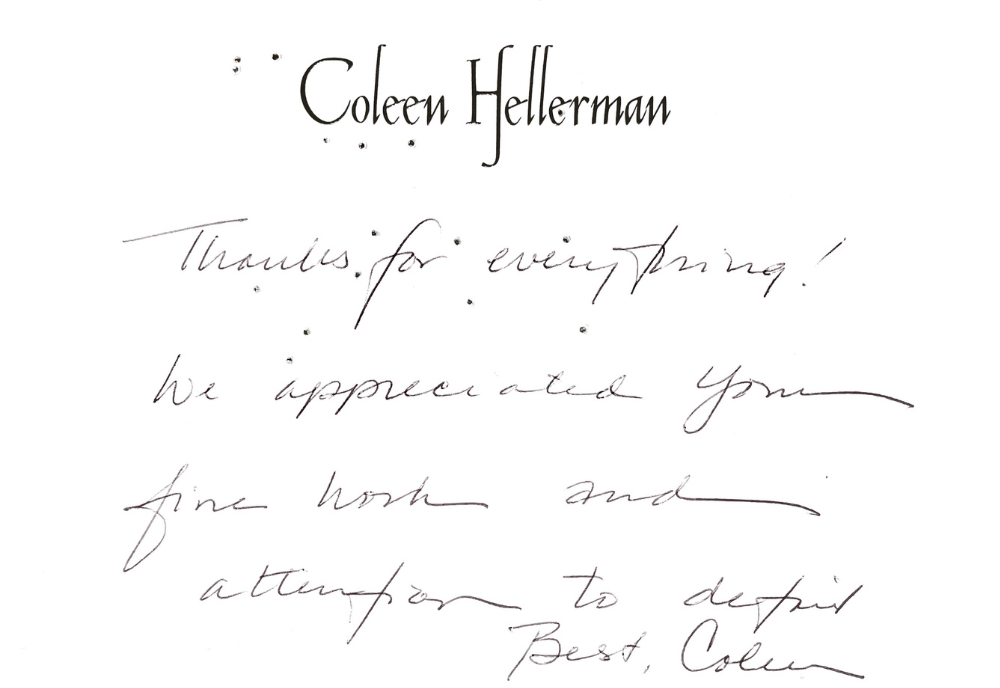 Coleen Hellerman
Thanks for everything!
We appreciated your
fine work and
attention to detail
Best, Coleen